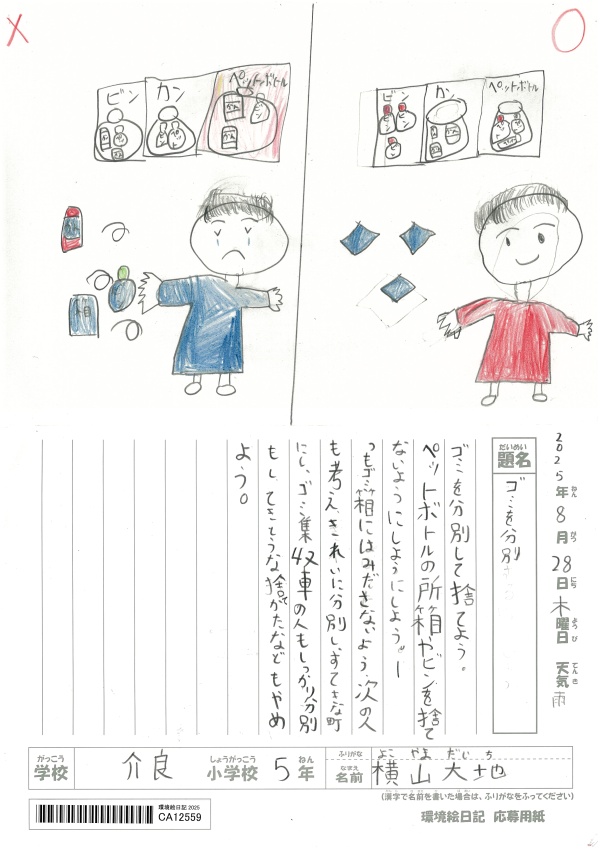 ×
○
ビン
カン
ペットボトル
ビン
カン
ペットボトル
2025年8月28日木曜日 天気 雨
題名 ゴミを分別
ゴミを分別して捨てよう。
ペットボトルの所箱やビンを捨て
ないようにしようにしよう。ー
つもゴミ箱にはみださないよう、次の人
も考え、きれいに分別し、すてきな町
にし、ゴミ集収車の人もしっかり分別
もし、てきとうな捨がたなどもやめ
よう。
がっこう しょうがっこう ねん ふりがな よこ やま だい ち
学校 介良 小学校 5年 なまえ 名前 横山大地
(漢字で名前を書いた場合は、ふりがなをふってください)
環境絵日記 2025
CA12559
環境絵日記 応募用紙